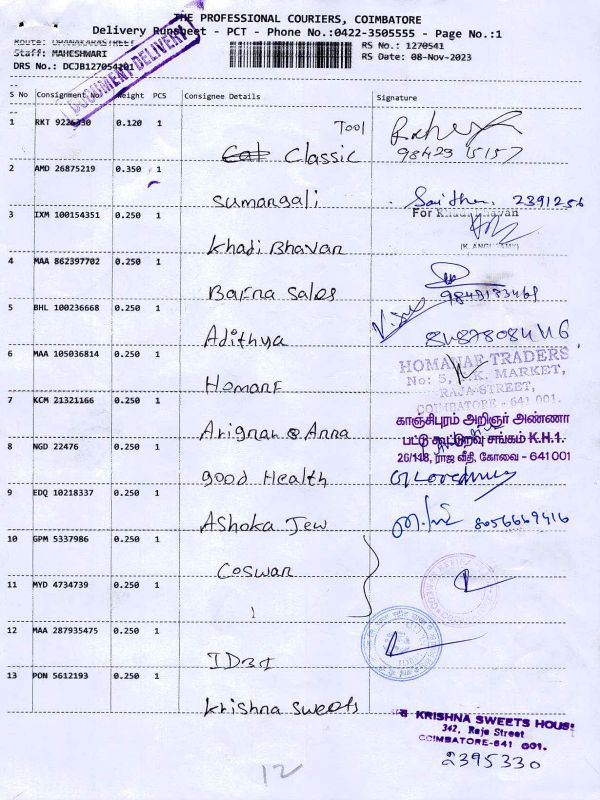 THE PROFESSIONAL COURIERS, COIMBATORE
Delivery Runsheet - PCT - Phone No.:0422-3505555 - Page No.:1
RS No.: 1270541
Staff: MAHESHWARI
RS Date: 08-Nov-2023
DRS No.: DCJB127054101
DOCUMENT DELIVERY
S No Consignment No Weight PCS Consignee Details Signature
1 RKT 9226330 0.120 1 Tool
Cat Classic
98423 15157
2 AMD 26875219 0.350 1
Sumangali
2391256
3 IXM 100154351 0.250 1 For Khadi Bhavan
Khadi Bhavan
4 MAA 862397702 0.250 1
Barna Sales
5 BHL 100236668 0.250 1
Adithya
6 MAA 105036814 0.250 1 HOMANAF TRADERS
No: 5, MARKET,
RAJA STREET,
COIMBATORE - 641 001.
Homanf
7 KCM 21321166 0.250 1 காஞ்சிபுரம் அறிஞர் அண்ணா
பட்டு கூட்டுறவு சங்கம் K.H.1.
26/148, ராஜ வீதி, கோவை - 641 001
Arignar Anna
8 NGD 22476 0.250 1
good Health
9 EDQ 10218337 0.250 1
Ashoka Jew
8056669416
10 GPM 5337986 0.250 1
Coswan
11 MYD 4734739 0.250 1
12 MAA 287935475 0.250 1
13 PON 5612193 0.250 1
Krishna Sweets
KRISHNA SWEETS HOUSE
342, Raja Street
COIMBATORE-641 001.
2395330
12